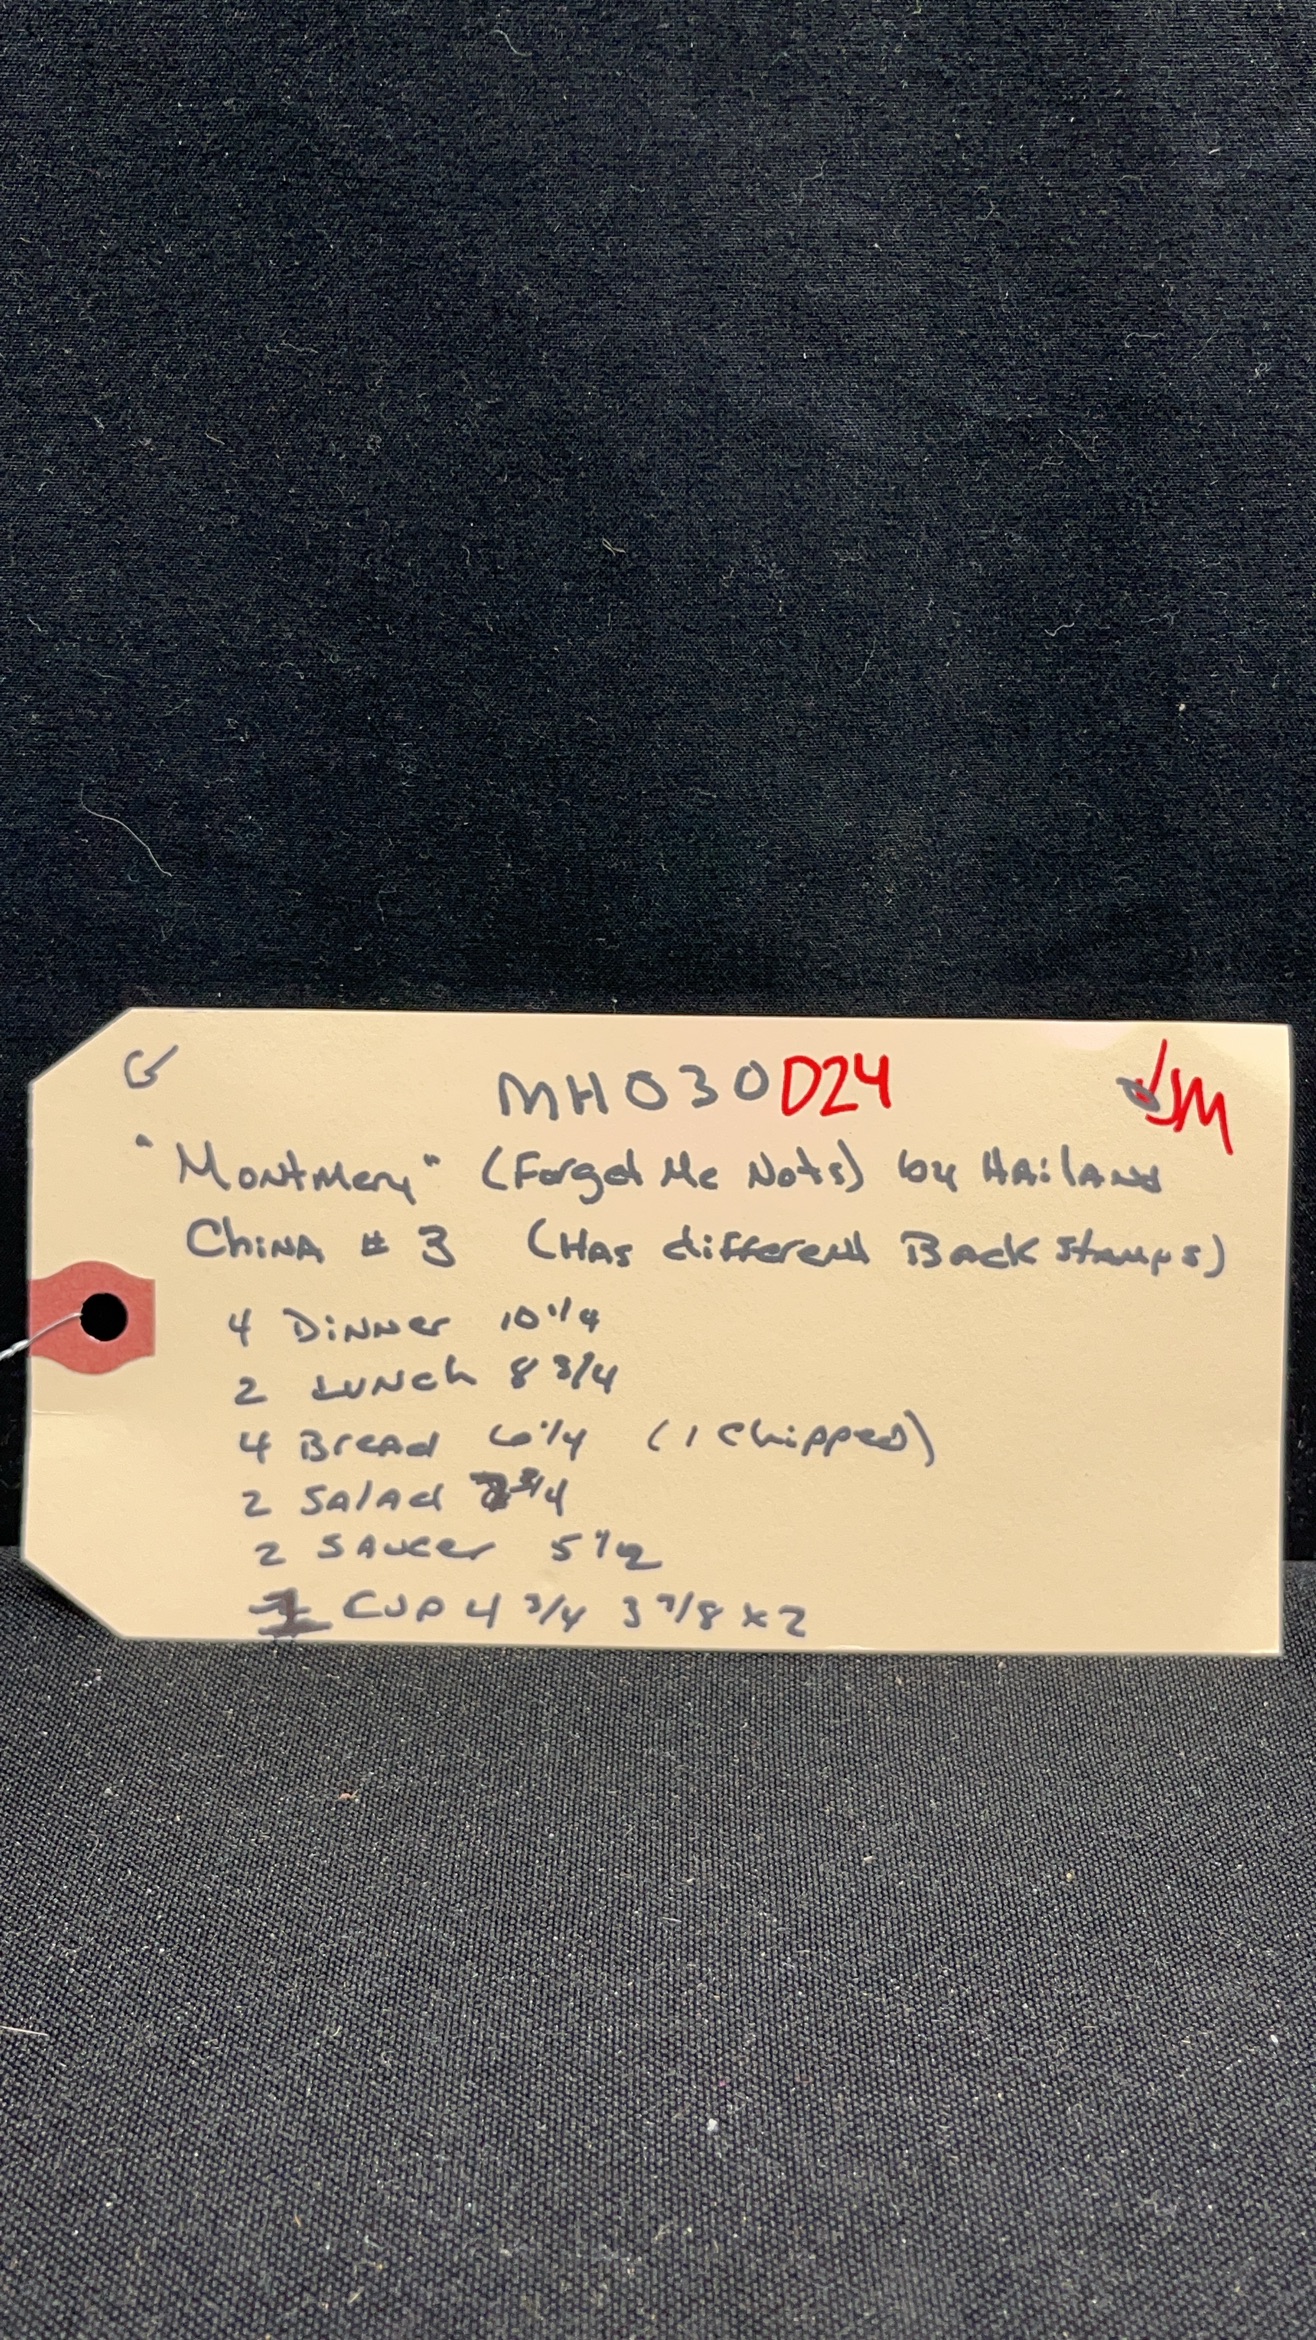 G
MH030D24 JM
"Montmery" (Forget Me Nots) by HAilAND
CHiNA # 3 (HAs different BAck stamps)
4 DiNNer 10 1/4
2 LUNch 8 3/4
4 BreAd 6 1/4 (1 chipped)
2 SAlAd 7 3/4
2 SAucer 5 1/2
1 CUP 4 3/4 3 7/8 x 2